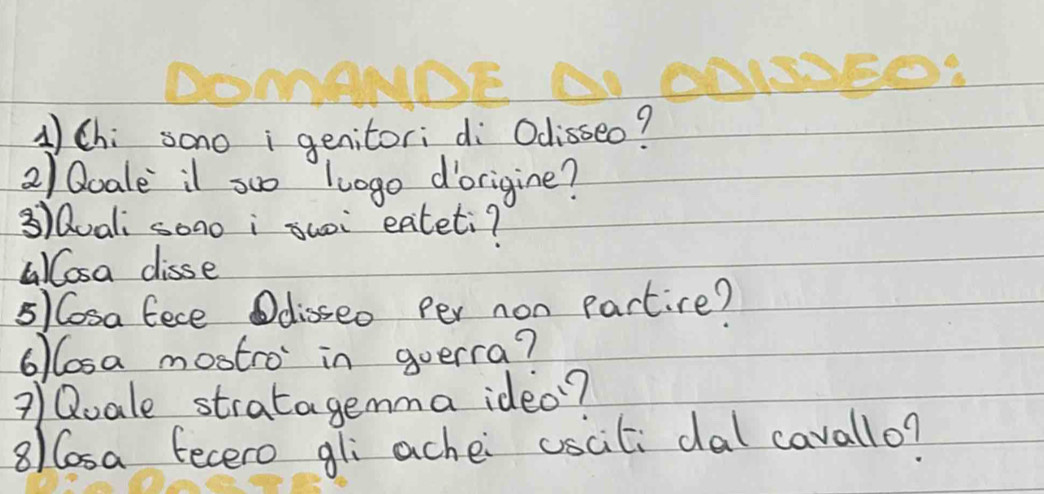 DOMANDE DI ODISSEO:
1) Chi sono i genitori di Odisseo?
2) Quale è il suo luogo d'origine?
3) Quali sono i suoi epiteti?
4) Cosa disse
5) Cosa fece Odisseo per non partire?
6) Cosa mostrò in guerra?
7) Quale stratagemma ideò?
8) Cosa fecero gli achei usciti dal cavallo?
RISPOSTE: